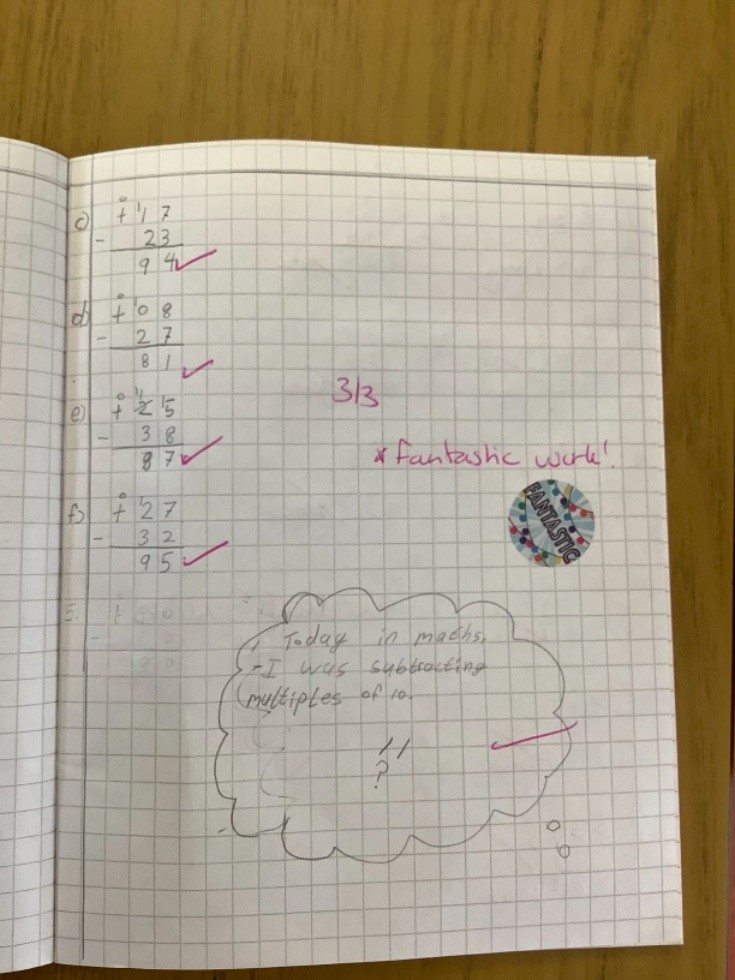 c) 0
1 ¹1 7
- 23
9 4
d) 0
1 ¹0 8
- 2 7
8 1
e) 0 ¹1
1 2 ¹5
- 3 8
8 7
f) 0
1 ¹2 7
- 3 2
9 5
5.
3/3
* fantastic work!
FANTASTIC
Today in maths,
I was subtracting
multiples of 10.
?